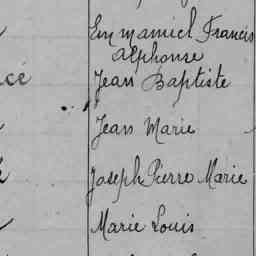 Emmanuel Francis
Alphonse
cé Jean Baptiste
Jean Marie
Joseph Pierre Marie
Marie Louis